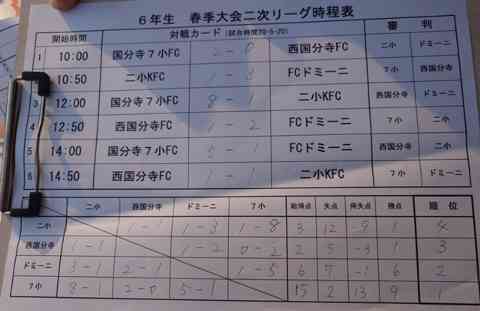 6年生 春季大会二次リーグ時程表
開始時間 対戦カード(試合時間20-5-20) 審判
1 10:00 国分寺7小FC 2-0 西国分寺FC 二小 ドミーニ
10:50 二小KFC 1-3 FCドミーニ 7小 西国分寺
3 12:00 国分寺7小FC 8-1 二小KFC 西国分寺 ドミーニ
4 12:50 西国分寺FC 1-2 FCドミーニ 7小 二小
5 14:00 国分寺7小FC 5-1 FCドミーニ 西国分寺 二小
6 14:50 西国分寺FC 1-1 二小KFC 7小 ドミーニ
二小 西国分寺 ドミーニ 7小 総得点 失点 得失点 勝点 順位
二小 1-1 1-3 1-8 3 12 -9 1 4
西国分寺 1-1 1-2 0-2 2 5 -3 1 3
ドミーニ 3-1 2-1 1-5 6 7 -1 6 2
7小 8-1 2-0 5-1 15 2 13 9 1